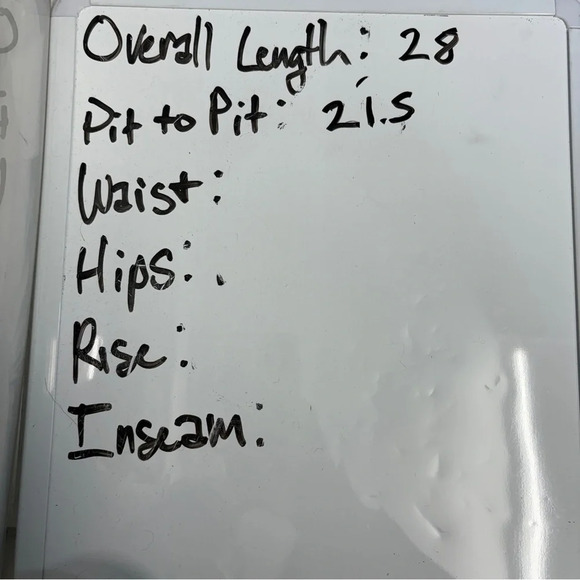 Overall Length: 28
Pit to Pit: 21.5
Waist:
Hips:
Rise:
Inseam: